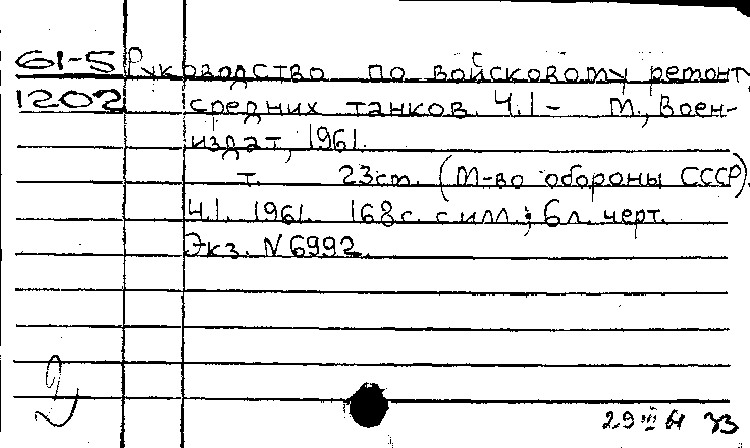 61-5 Руководство по войсковому ремонту
1202 средних танков. Ч.1 - М., Воен-
издат, 1961.
т. 23см. (М-во обороны СССР).
Ч.1. 1961. 168с. с илл.; 6л. черт.
Экз. №6992.
2
29 III 61